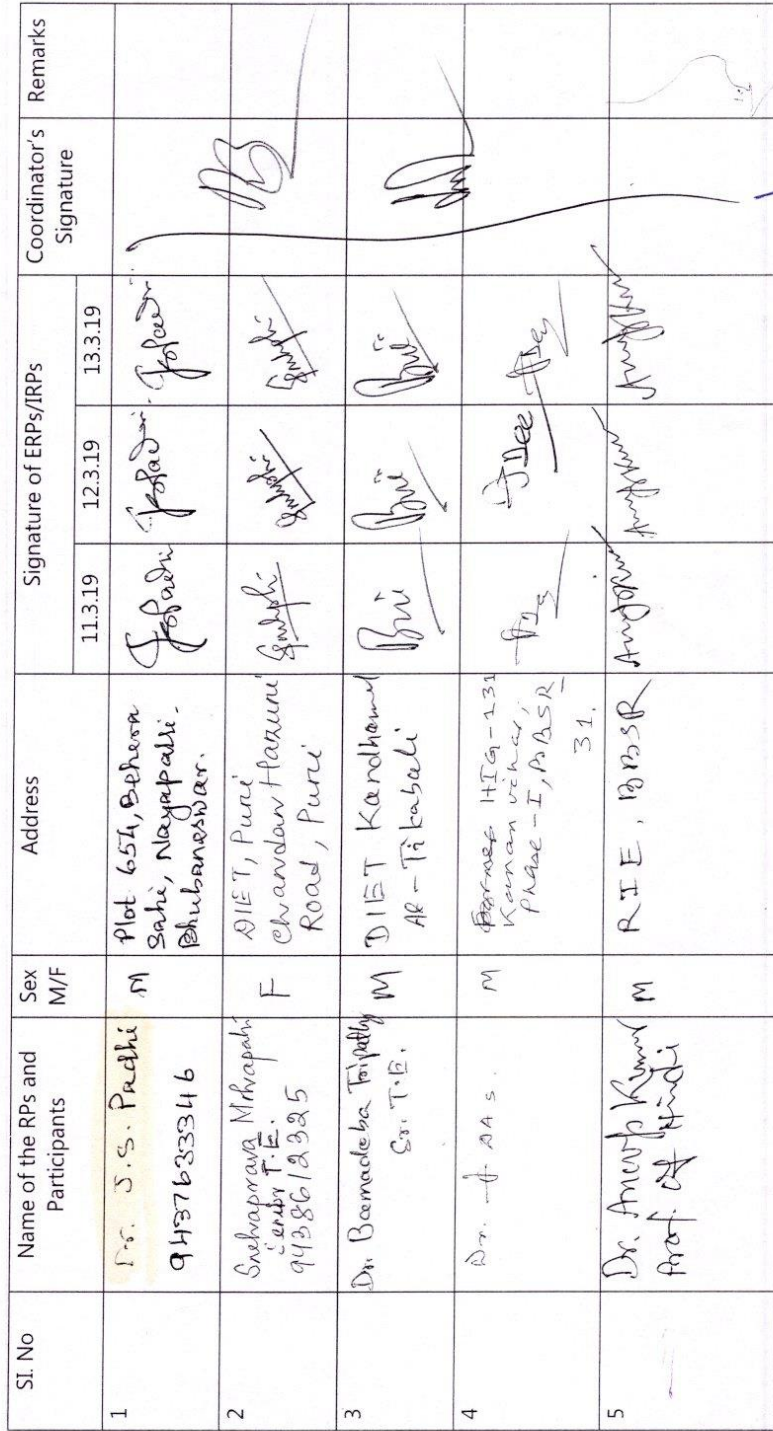 SI. No
Name of the RPs and
Participants
Sex
M/F
Address
Signature of ERPs/IRPs
Coordinator's
Signature
Remarks
11.3.19
12.3.19
13.3.19
1
Dr. J.S. Padhi
9437633346
M
Plot 654, Behera
Sahi, Nayapalli.
Bhubaneswar.
2
Snehaprava Mohapatra
Senior T.E.
9438612325
F
DIET, Puri
Chandan Hazuri
Road, Puri
3
Dr. Bamadeba Tripathy
Sr. T.E.
M
DIET Kandhamal
At - Tikabali
4
Dr. A DAS
M
HIG-131
Kanan vihar,
Phase-I, BBSR
31.
5
Dr. Anoop Kumar
Prof. of Hindi
M
RIE, BBSR